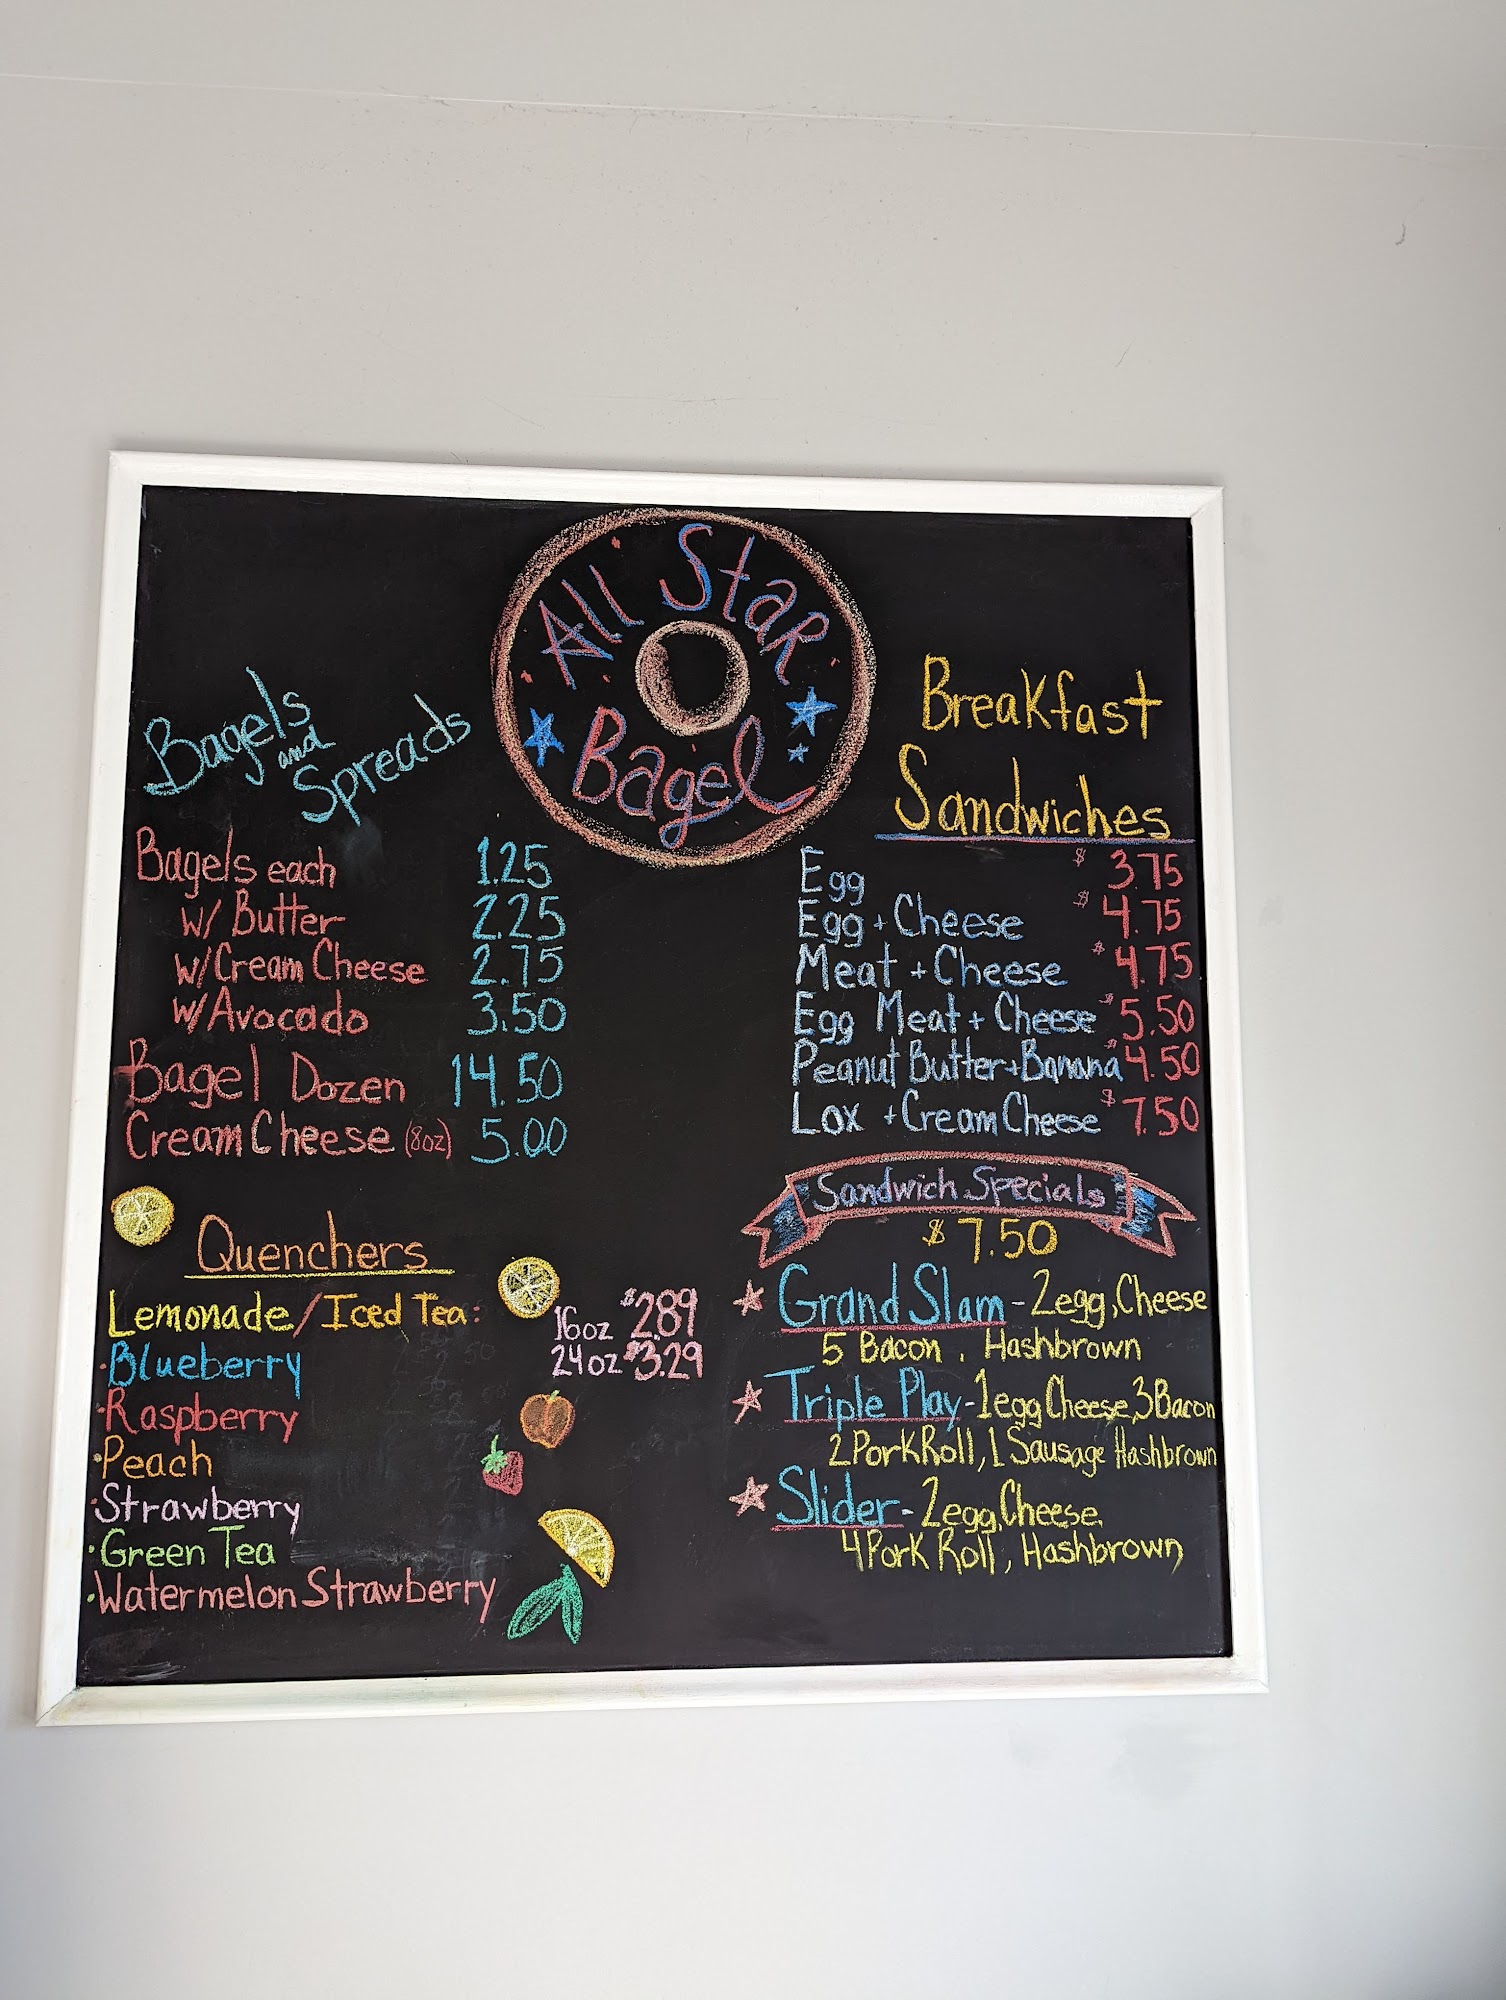 All Star
Bagel
Bagels
and
Spreads
Bagels each 1.25
w/ Butter 2.25
w/Cream Cheese 2.75
w/Avocado 3.50
Bagel Dozen 14.50
Cream Cheese (8oz) 5.00
Quenchers
Lemonade/Iced Tea:
16oz $2.89
24oz $3.29
·Blueberry
·Raspberry
·Peach
·Strawberry
·Green Tea
·Watermelon Strawberry
Breakfast
Sandwiches
Egg $3.75
Egg + Cheese $4.75
Meat + Cheese $4.75
Egg Meat + Cheese $5.50
Peanut Butter+Banana $4.50
Lox + Cream Cheese $7.50
Sandwich Specials
$7.50
Grand Slam - 2egg, Cheese
5 Bacon, Hashbrown
Triple Play - 1egg Cheese, 3 Bacon
2 Pork Roll, 1 Sausage Hashbrown
Slider - 2egg, Cheese,
4 Pork Roll, Hashbrown